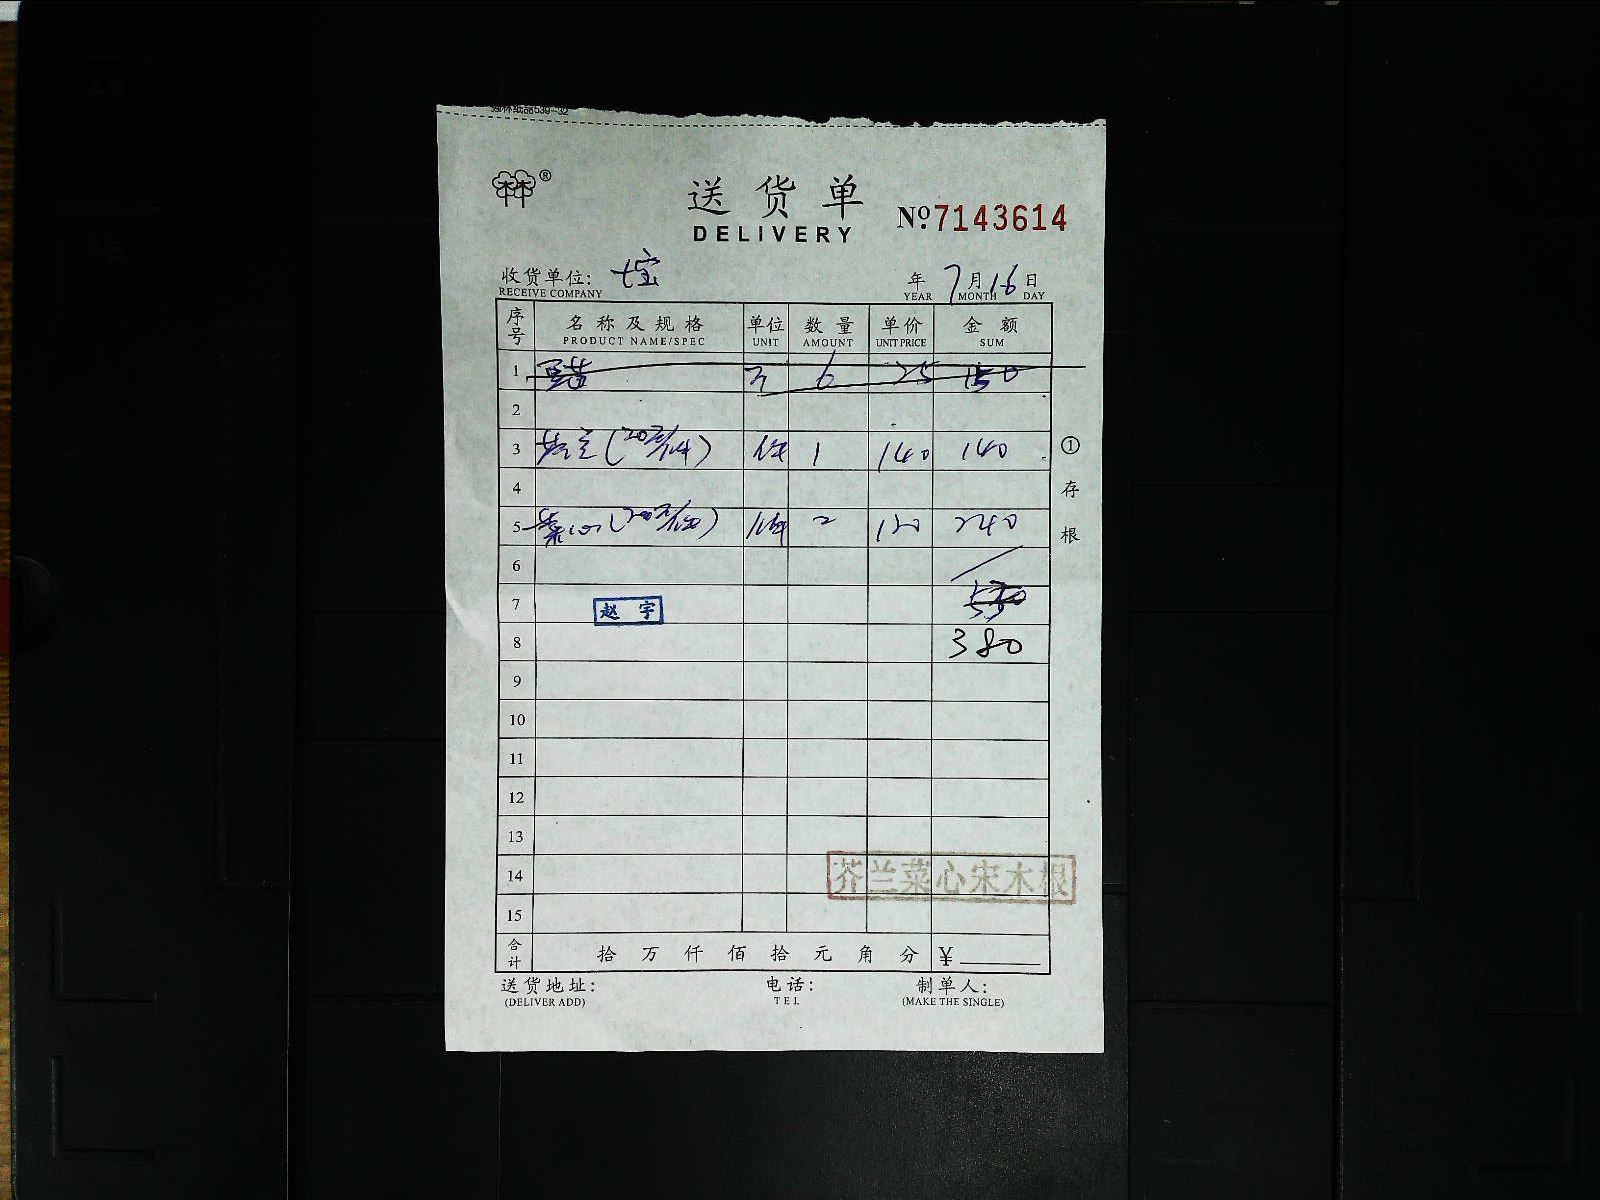 送货单
DELIVERY
№7143614
收货单位: 七宝
RECEIVE COMPANY
年 7月16日
YEAR MONTH DAY
序号 名称及规格 单位 数量 单价 金额
PRODUCT NAME/SPEC UNIT AMOUNT UNIT PRICE SUM
1 豆苗 6 25 150
2
3 芥兰( 件 1 140 140
4
5 菜心( 件 2 120 240
6
7 530
8 380
赵宇
9
10
11
12
13
14
15
芥兰菜心宋木根
①存根
合计 拾万仟佰拾元角分 ¥
送货地址: 电话: 制单人:
(DELIVER ADD) TEL (MAKE THE SINGLE)